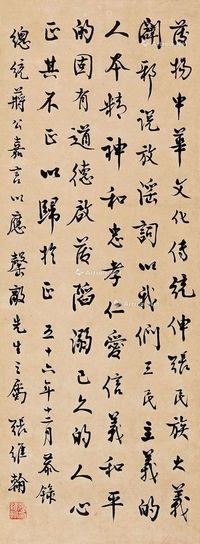 發揚中華文化傳統伸張民族大義
闢邪說放淫詞以我們三民主義的
人本精神和忠孝仁愛信義和平
的固有道德啟發陷溺已久的人心
正其不正以歸於正 五十六年十二月 恭錄
總統蔣公嘉言以應 槃敵先生之屬 張維翰